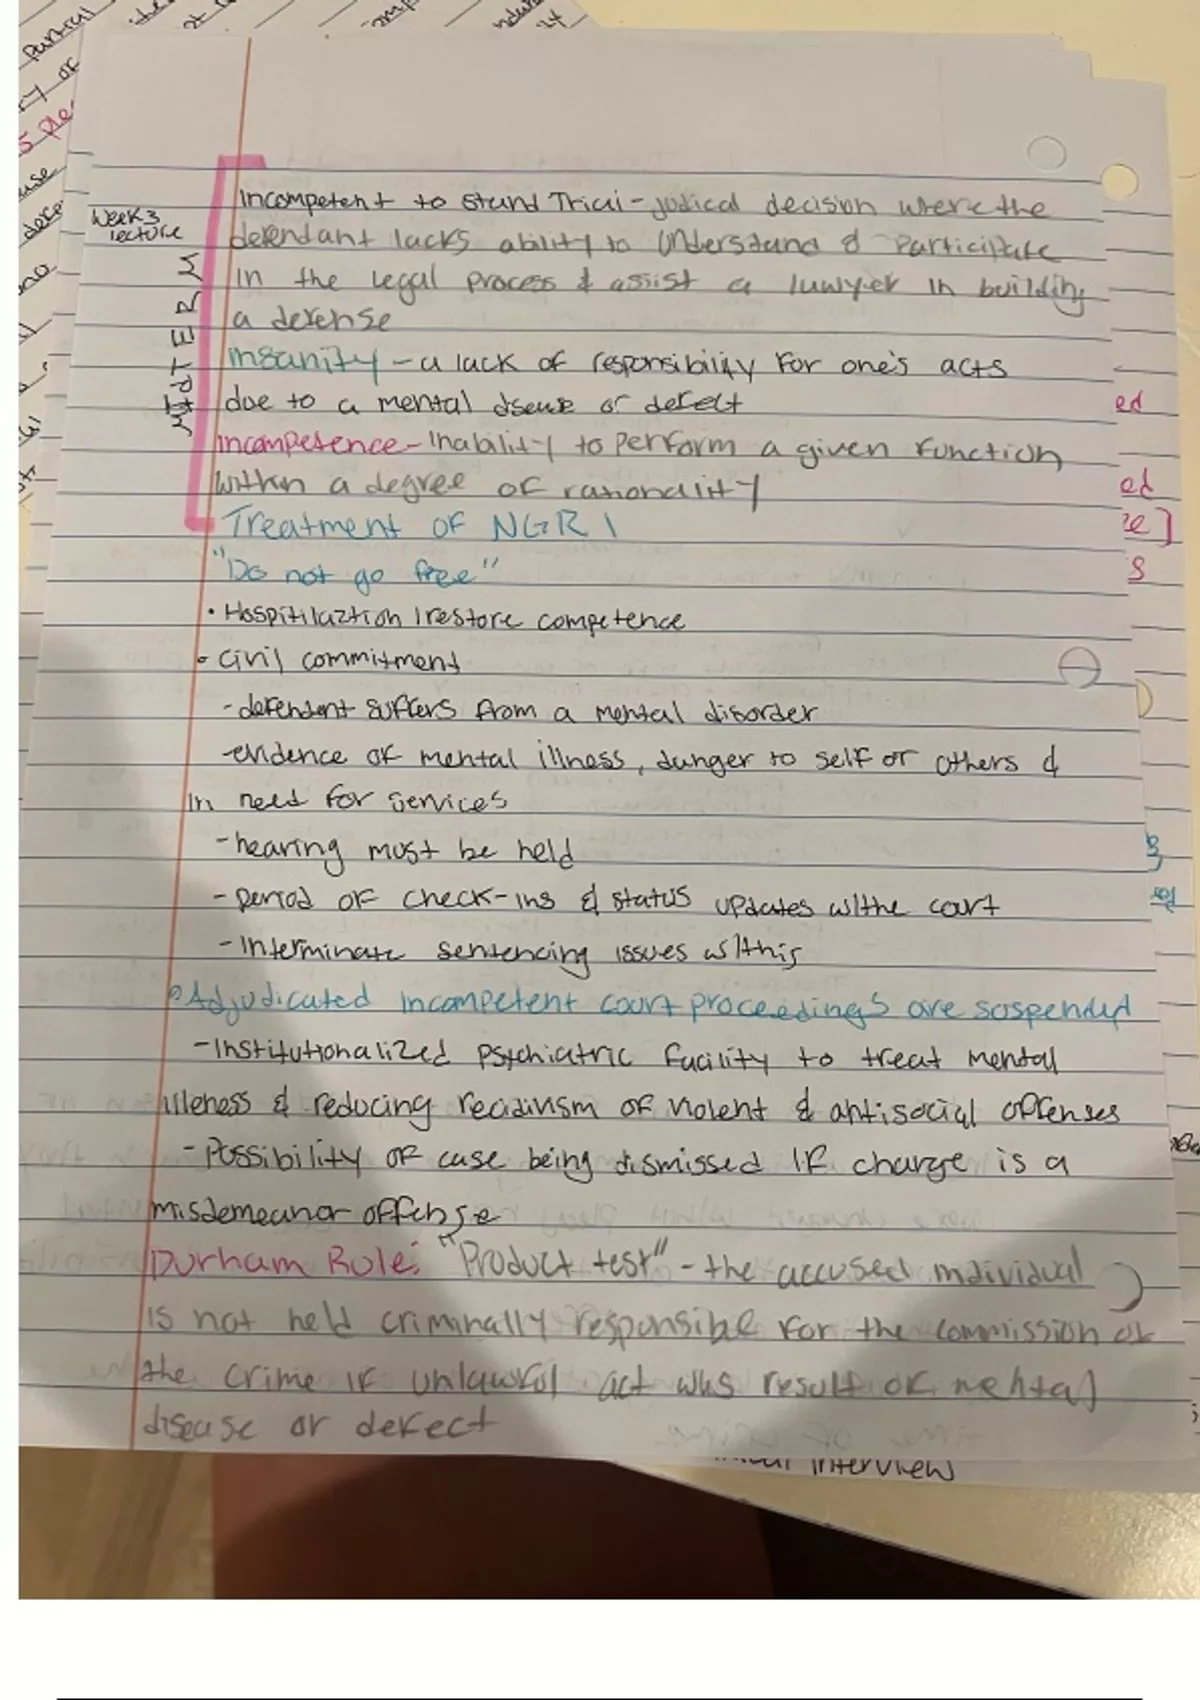 Week 3
lecture
MIDTERM
Incompetent to Stand Trial - judical decision where the
defendant lacks ability to understand & Participate
in the legal process & assist a lawyer in building
a defense
insanity - a lack of responsibility for one's acts
due to a mental dsease or defect
incompetence - Inability to perform a given function
within a degree of rationality
Treatment of NGRI
"Do not go free"
• Hospitilaztion / restore competence
• Civil commitment
- defendent suffers from a mental disorder
- evidence of mental illness, danger to self or others &
in need for services
- hearing must be held
- period of check-ins & status updates w/the court
- Interminate sentencing issues w/this
• Adjudicated incompetent court proceedings are suspended
- Institutionalized psychiatric facility to treat mental
illeness & reducing recidivism of violent & antisocial offenses
- Possibility of case being dismissed if charge is a
misdemeanor offense
Durham Rule: "Product test" - the accused individual
is not held criminally responsible for the commission of
the crime if unlawful act was result of mental
disease or defect
interview